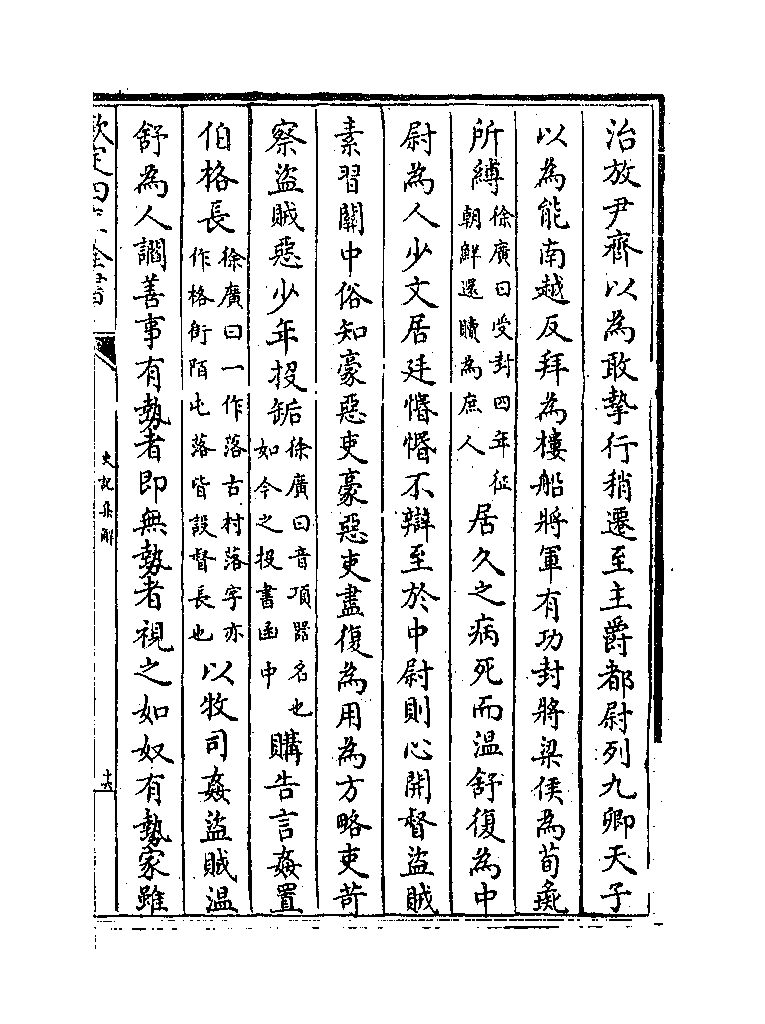 治放尹齊以為敢摯行稍遷至主爵都尉列九卿天子
以為能南越反拜為樓船將軍有功封將梁侯為荀彘
所縛徐廣曰受封四年征朝鮮還贖為庶人居久之病死而温舒復為中
尉為人少文居廷惛惛不辯至於中尉則心開督盜賊
素習關中俗知豪惡吏豪惡吏盡復為用為方略吏苛
察盜賊惡少年投缿徐廣曰音項器名也如今之投書函中購告言姦置
伯格長徐廣曰一作落古村落字亦作格街陌屯落皆設督長也以牧司姦盜賊温
舒為人讇善事有勢者即無勢者視之如奴有勢家雖
欽定四庫全書
史記集解
十六